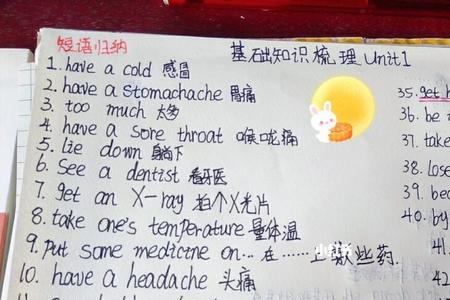 短语归纳
基础知识梳理 Unit1
1. have a cold 感冒
2. have a stomachache 胃痛
3. too much 太多
4. have a sore throat 喉咙痛
5. lie down 躺下
6. See a dentist 看牙医
7. get an X-ray 拍个X光片
8. take one's temperature 量体温
9. Put some medicine on... 在......上敷些药.
10. have a headache 头痛
35. get
36. be
37. take
38. lose
39.
40. by
41.
42